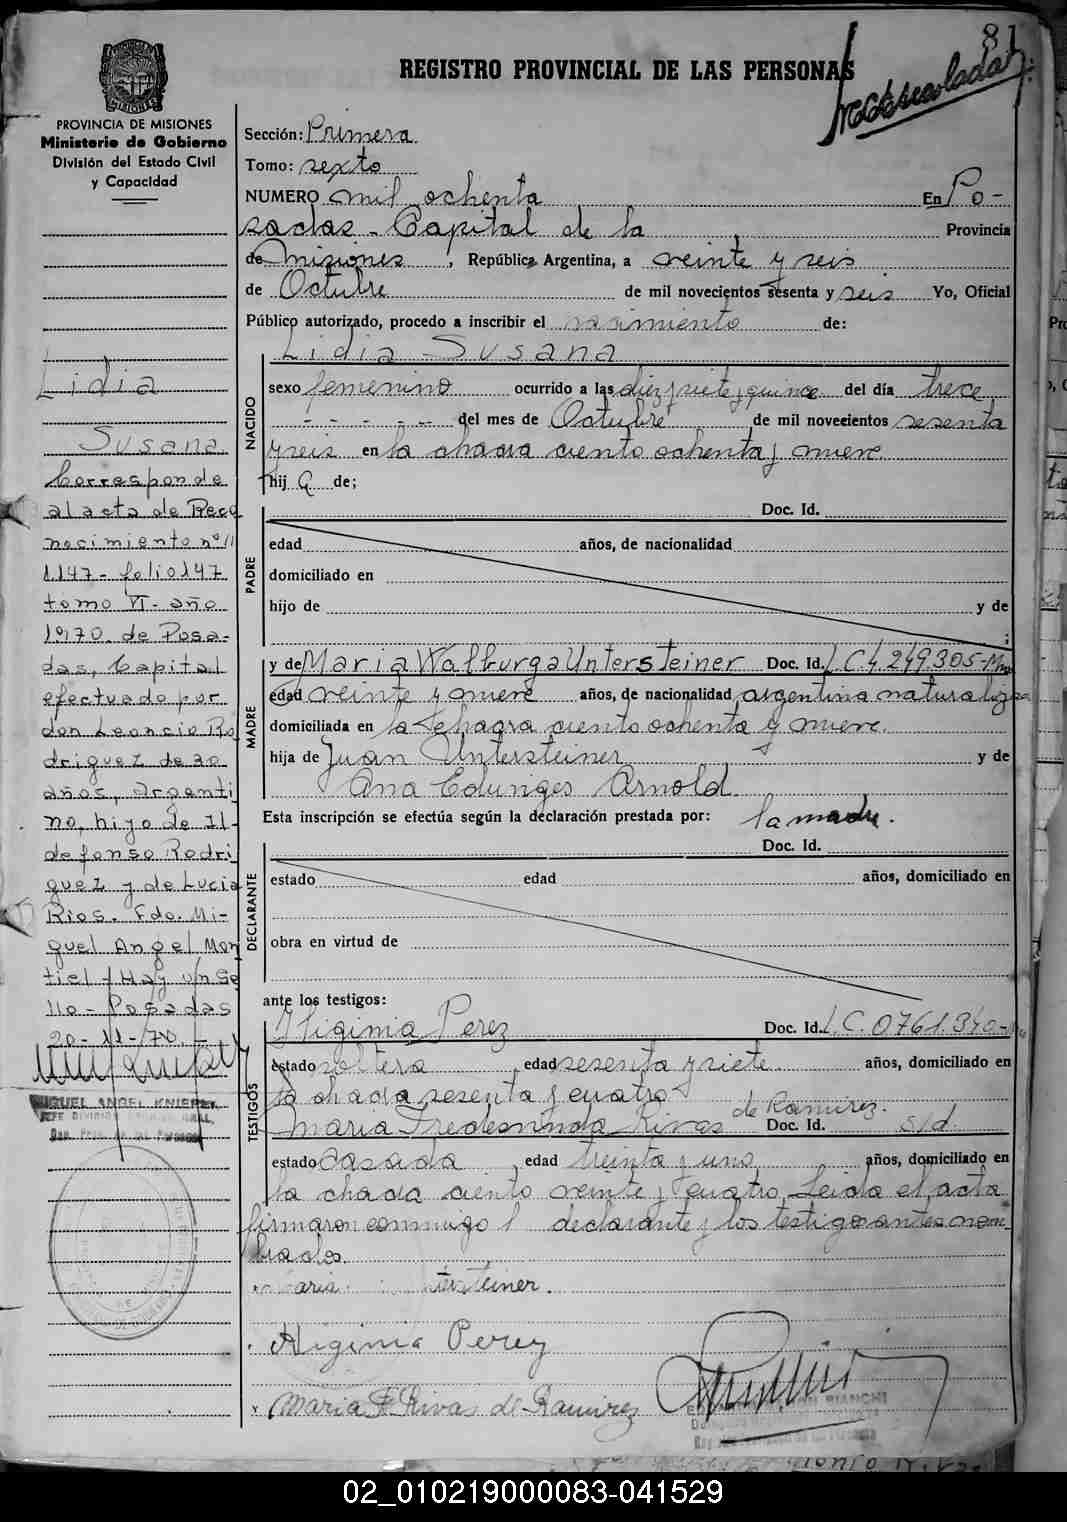 81
REGISTRO PROVINCIAL DE LAS PERSONAS
PROVINCIA DE MISIONES
Ministerio de Gobierno
División del Estado Civil
y Capacidad
Sección: Primera
Tomo: sexto
NUMERO mil ochenta En Po-
sadas - Capital de la Provincia
de Misiones, República Argentina, a veinte y seis
de Octubre de mil novecientos sesenta y seis Yo, Oficial
Público autorizado, procedo a inscribir el nacimiento de:
Lidia Susana
NACIDO
sexo femenino ocurrido a las diez y siete y quince del día trece
- - - - - del mes de Octubre de mil novecientos sesenta
y seis en la chacra ciento ochenta y nueve
hij a de;
PADRE
Doc. Id.
edad años, de nacionalidad
domiciliado en
hijo de y de
;
MADRE
y de Maria Walburga Untersteiner Doc. Id. L.C 4.249.305-M
edad veinte y nueve años, de nacionalidad argentina naturaliza
domiciliada en la chacra ciento ochenta y nueve.
hija de Juan Untersteiner y de
Ana Eduinges Arnold
Esta inscripción se efectúa según la declaración prestada por: la madre.
DECLARANTE
Doc. Id.
estado edad años, domiciliado en
obra en virtud de
ante los testigos:
TESTIGOS
Higinia Perez Doc. Id. L.C. 0761.340-
estado soltera edad sesenta y siete años, domiciliado en
la chacra sesenta y cuatro
de Ramirez.
Maria Rivas Doc. Id. s/d.
estado casada edad treinta y uno años, domiciliado en
la chacra ciento veinte y cuatro. Leida el acta
firmaron conmigo l declarante y los testigos antes nom-
brados.
Maria tersteiner.
Higinia Perez
Maria F Rivas de Ramirez
BIANCHI
Lidia
Susana
Corresponde
al acta de Reco
nocimiento nº 11
1147 - folio 147
tomo VI - año
1970. de Posa-
das, Capital
efectuado por
don Leoncio Ro
driguez de 30
años, Argenti
no, hijo de Il-
defonso Rodri
guez y de Lucia
Rios. Fdo. Mi-
guel Angel Mon
tiel - Hay un Se
llo - Posadas
20-11-70.
MIGUEL ANGEL KNIEPER
02_010219000083-041529